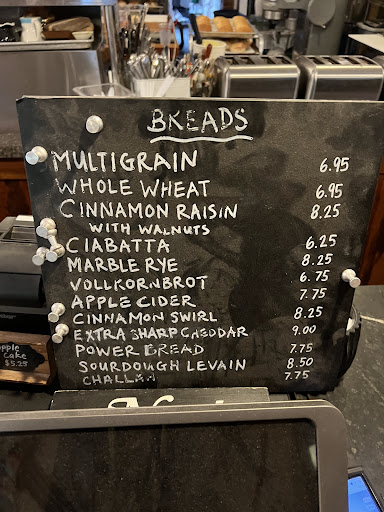 BREADS
MULTIGRAIN 6.95
WHOLE WHEAT 6.95
CINNAMON RAISIN 8.25
WITH WALNUTS
CIABATTA 6.25
MARBLE RYE 8.25
VOLLKORNBROT 6.75
APPLE CIDER 7.75
CINNAMON SWIRL 8.25
EXTRA SHARP CHEDDAR 9.00
POWER BREAD 7.75
SOURDOUGH LEVAIN 8.50
CHALLAH 7.75
Apple
Cake
$5.25